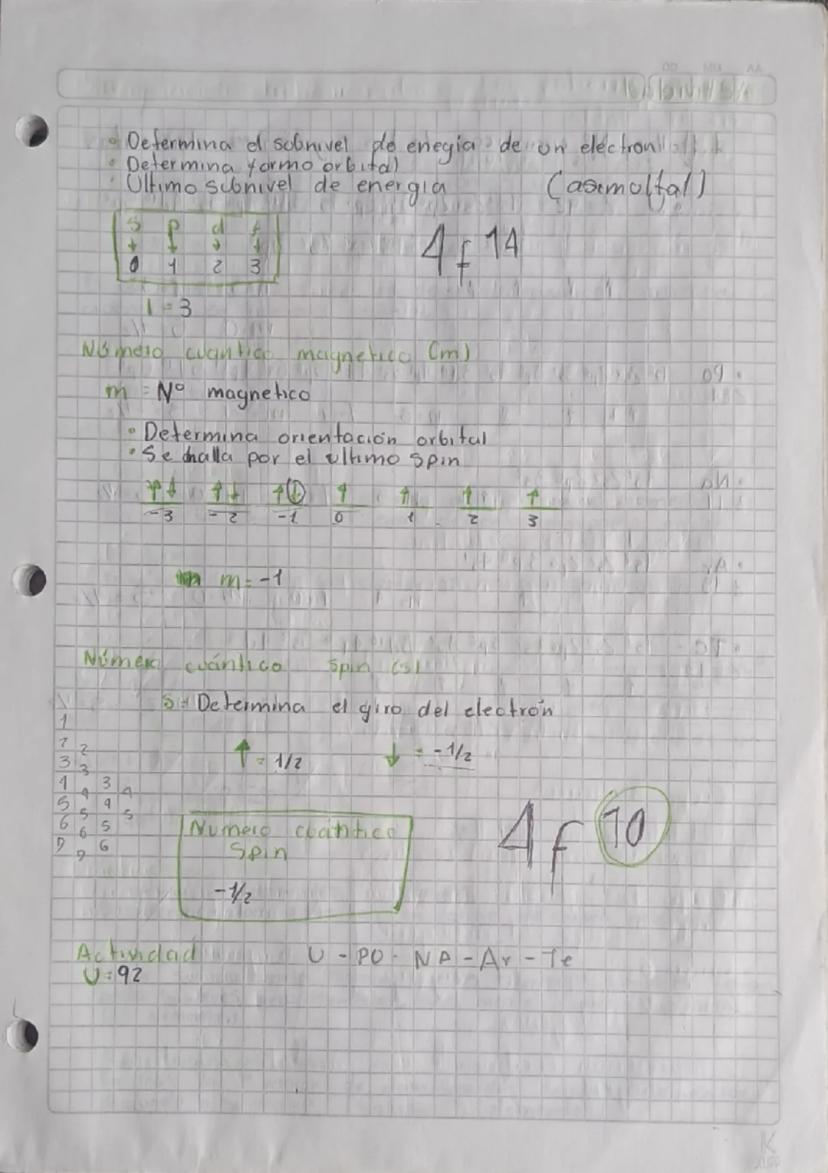 DD MM AA
• Determina el sobnivel de enegia de un electron
• Determina formo orbital
• Ultimo subnivel de energia (asimoltal)
s p d f
↓ ↓ ↓ ↓
0 1 2 3
4f14
l = 3
Número cuantico magnetico (m)
m = Nº magnetico
• Determina orientación orbital
• Se halla por el ultimo spin
↑↓ ↑↓ ↑↓ ↑ ↑ ↑ ↑
-3 -2 -1 0 1 2 3
m = -1
Númer cuántico spin (s)
S = Determina el giro del electrón
↑ = 1/2 ↓ = -1/2
1
2 2
3 3
4 3
5 4 4 4
6 5 5 5
7 6 6
4f10
Numero cuantico
Spin
-1/2
Actividad U - PO - NP - Ar - Te
U = 92